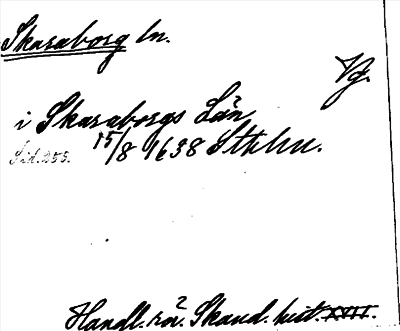 Skaraborg ln.
Vg.
i Skaraborgs Län
Sid. 255. 15/8 1638 Sthlm.
Handl. rör. Skand. hist. XVII.